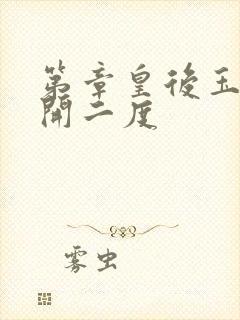 第章皇後玉
開二度
雾虫